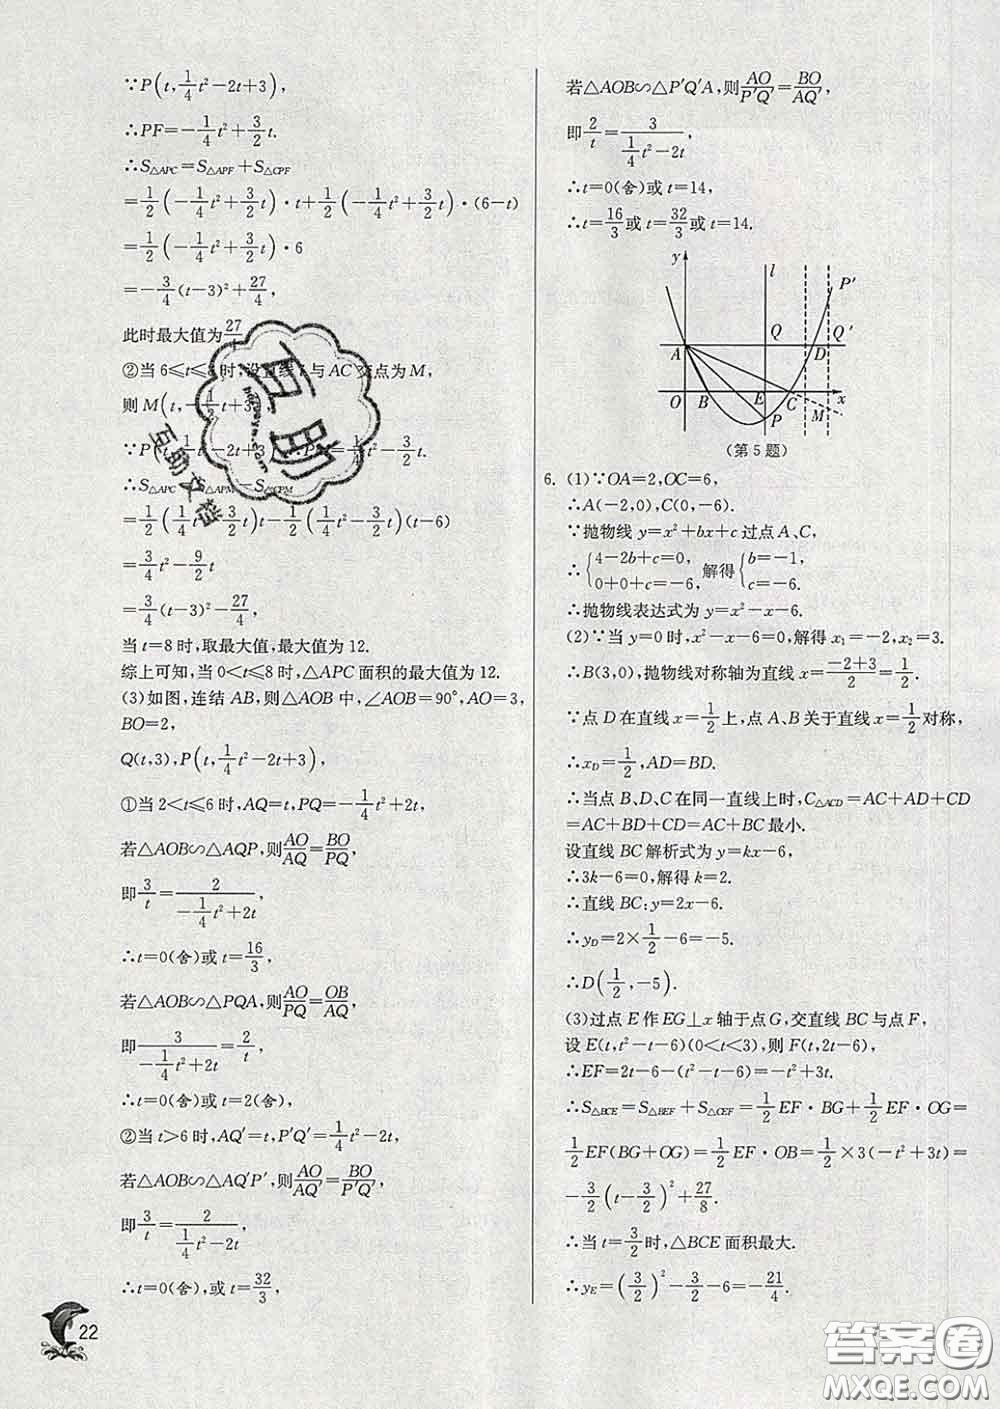 ∵P(t,1/4t²−2t+3),
∴PF=−1/4t²+3/2t.
∴S△APC=S△APF+S△CPF
=1/2(−1/4t²+3/2t)·t+1/2(−1/4t²+3/2t)·(6−t)
=1/2(−1/4t²+3/2t)·6
=−3/4(t−3)²+27/4,
此时最大值为27/
②当6≤t≤ 时,设直线l与AC交点为M,
则M(t,−1/2t+3),
∵P
∴S△APC=S△APM−S△CPM
=1/2(1/4t²−3/2t)t−1/2(1/4t²−3/2t)(t−6)
=3/4t²−9/2t
=3/4(t−3)²−27/4,
当t=8时,取最大值,最大值为12.
综上可知,当0<t≤8时,△APC面积的最大值为12.
(3)如图,连结AB,则△AOB中,∠AOB=90°,AO=3,
BO=2,
Q(t,3),P(t,1/4t²−2t+3),
①当2<t≤6时,AQ=t,PQ=−1/4t²+2t,
若△AOB∽△AQP,则AO/AQ=BO/PQ,
即3/t=2/(−1/4t²+2t),
∴t=0(舍)或t=16/3,
若△AOB∽△PQA,则AO/PQ=OB/AQ,
即3/(−1/4t²+2t)=2/t,
∴t=0(舍)或t=2(舍),
②当t>6时,AQ′=t,P′Q′=1/4t²−2t,
若△AOB∽△AQ′P′,则AO/AQ′=BO/P′Q′,
即3/t=2/(1/4t²−2t),
∴t=0(舍),或t=32/3,
22
若△AOB∽△P′Q′A,则AO/P′Q′=BO/AQ′,
即2/t=3/(1/4t²−2t),
∴t=0(舍)或t=14,
∴t=16/3或t=32/3或t=14.
y
l
P′
Q
Q′
A
D
O
B
E
C
x
M
P
(第5题)
6. (1)∵OA=2,OC=6,
∴A(−2,0),C(0,−6).
∵抛物线y=x²+bx+c过点A、C,
∴{4−2b+c=0, 0+0+c=−6, 解得{b=−1, c=−6.
∴抛物线表达式为y=x²−x−6.
(2)∵当y=0时,x²−x−6=0,解得x₁=−2,x₂=3.
∴B(3,0),抛物线对称轴为直线x=(−2+3)/2=1/2.
∵点D在直线x=1/2上,点A、B关于直线x=1/2对称,
∴xD=1/2,AD=BD.
∴当点B、D、C在同一直线上时,C△ACD=AC+AD+CD
=AC+BD+CD=AC+BC最小.
设直线BC解析式为y=kx−6,
∴3k−6=0,解得k=2.
∴直线BC:y=2x−6.
∴yD=2×1/2−6=−5.
∴D(1/2,−5).
(3)过点E作EG⊥x轴于点G,交直线BC与点F,
设E(t,t²−t−6)(0<t<3),则F(t,2t−6),
∴EF=2t−6−(t²−t−6)=−t²+3t.
∴S△BCE=S△BEF+S△CEF=1/2EF·BG+1/2EF·OG=
1/2EF(BG+OG)=1/2EF·OB=1/2×3(−t²+3t)=
−3/2(t−3/2)²+27/8.
∴当t=3/2时,△BCE面积最大.
∴yE=(3/2)²−3/2−6=−21/4.
互助
互助文档
答案圈
MXQE.COM